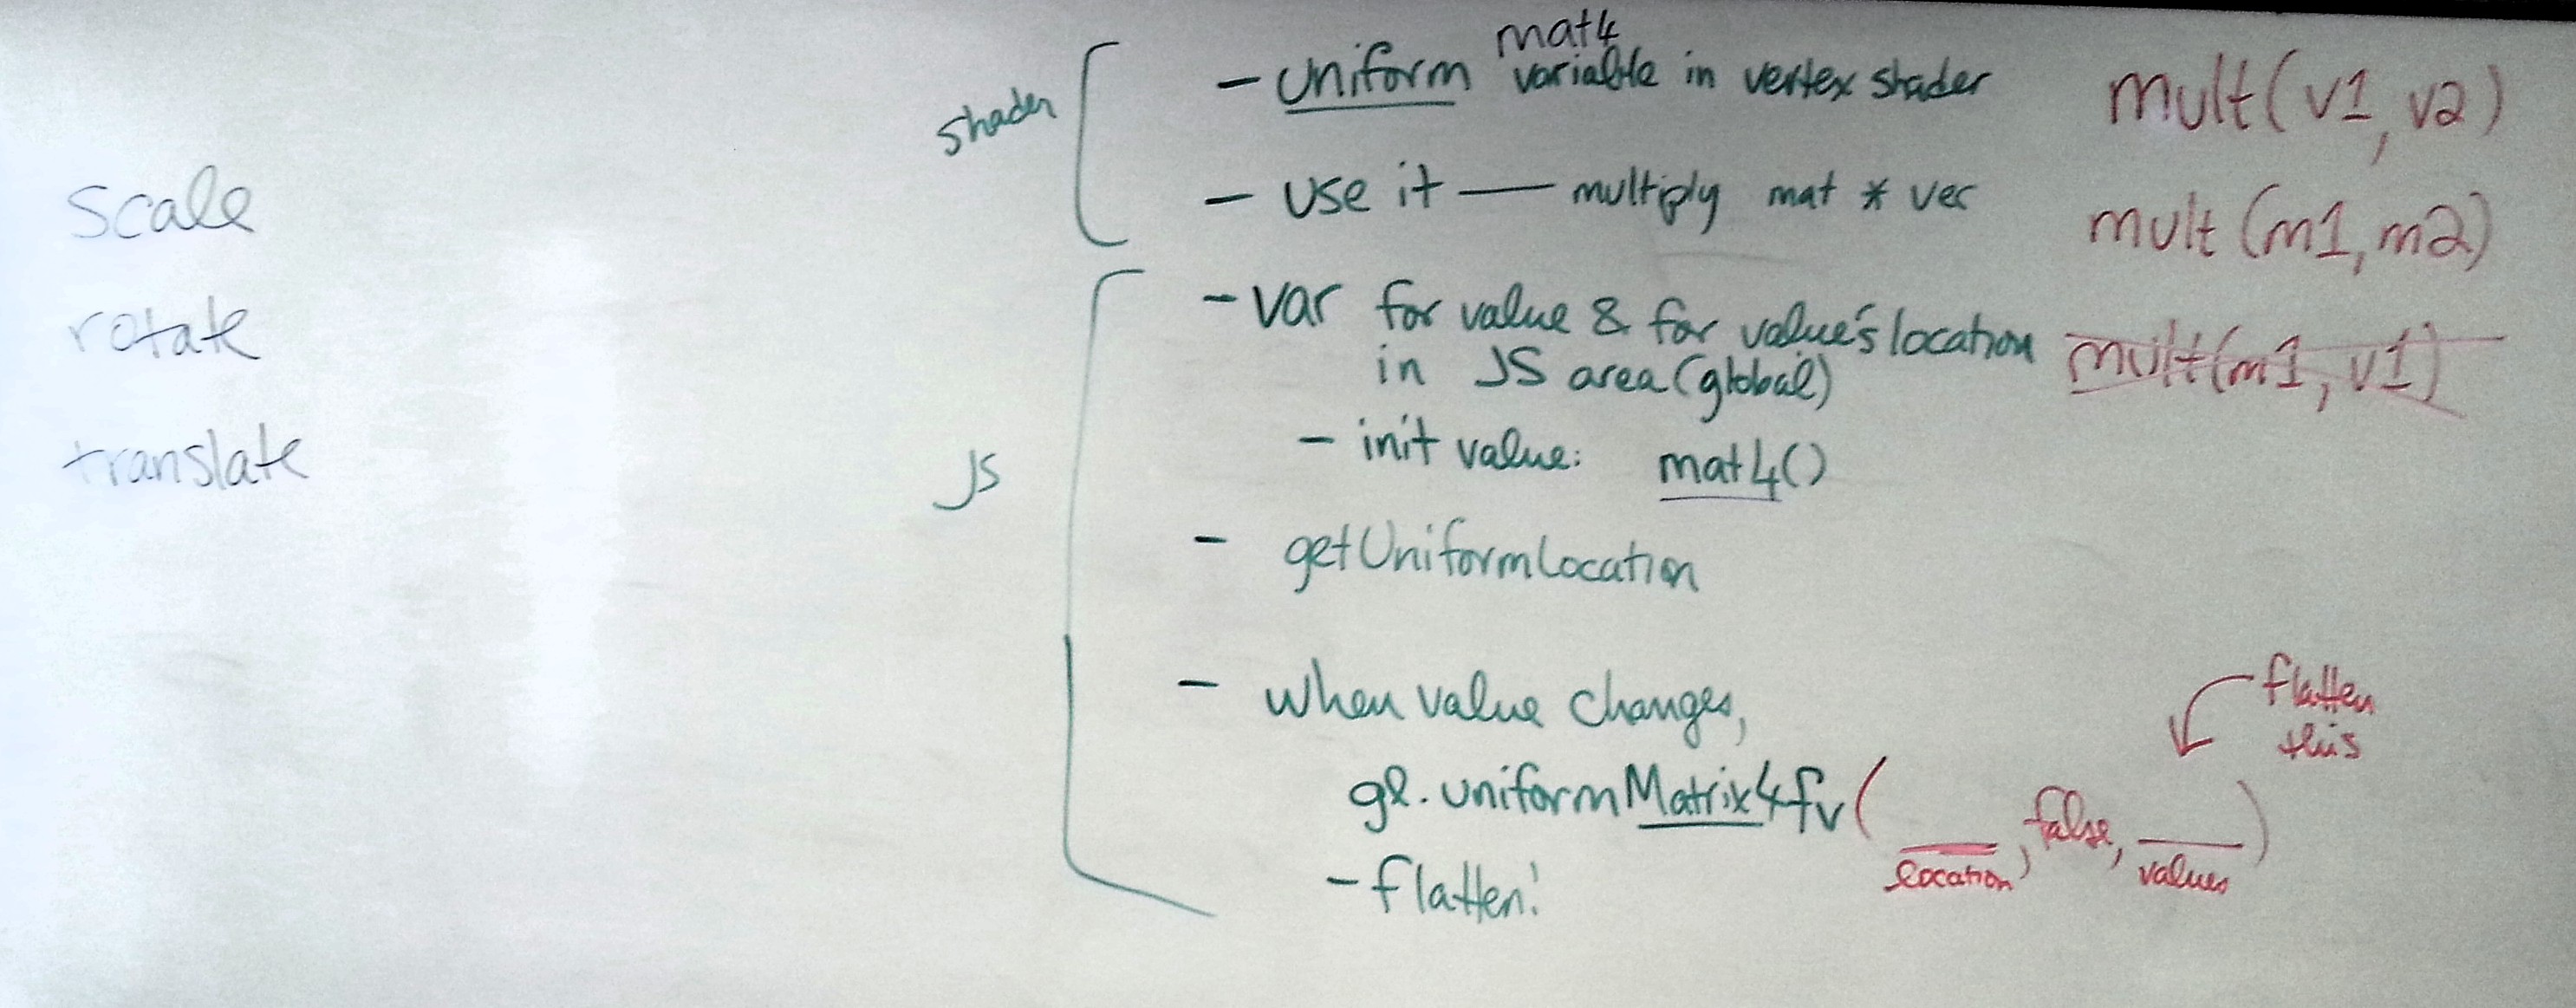 scale
rotate
translate
shader
mat4
- Uniform variable in vertex shader
- use it — multiply mat * vec
JS
- var for value & for value's location
in JS area (global)
- init value: mat4()
- getUniformLocation
- when value changes,
gl.uniformMatrix4fv( location, false, values )
- flatten!
flatten
this
mult(v1, v2)
mult(m1, m2)
mult(m1, v1)